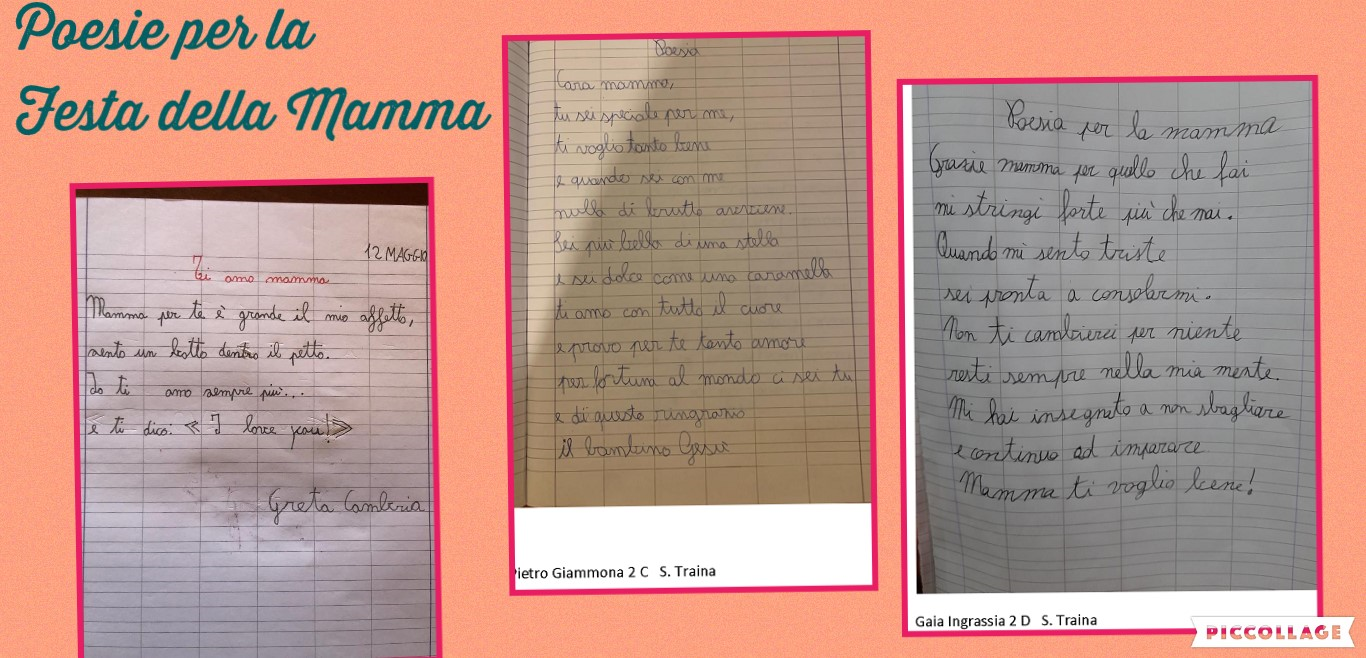 Poesie per la
Festa della Mamma
12 MAGGIO
Ti amo mamma
Mamma per te è grande il mio affetto,
sento un botto dentro il petto.
Io ti amo sempre più...
e ti dico: « I love you! »
Greta Cambria
Poesia
Cara mamma,
tu sei speciale per me,
ti voglio tanto bene
e quando sei con me
nulla di brutto avviene.
Sei più bella di una stella
e sei dolce come una caramella
ti amo con tutto il cuore
e provo per te tanto amore
per fortuna al mondo ci sei tu
e di questo ringrazio
il bambino Gesù
Pietro Giammona 2 C S. Traina
Poesia per la mamma
Grazie mamma per quello che fai
mi stringi forte più che mai.
Quando mi sento triste
sei pronta a consolarmi.
Non ti cambierei per niente
resti sempre nella mia mente.
Mi hai insegnato a non sbagliare
e continuo ad imparare
Mamma ti voglio bene!
Gaia Ingrassia 2 D S. Traina
PICCOLLAGE